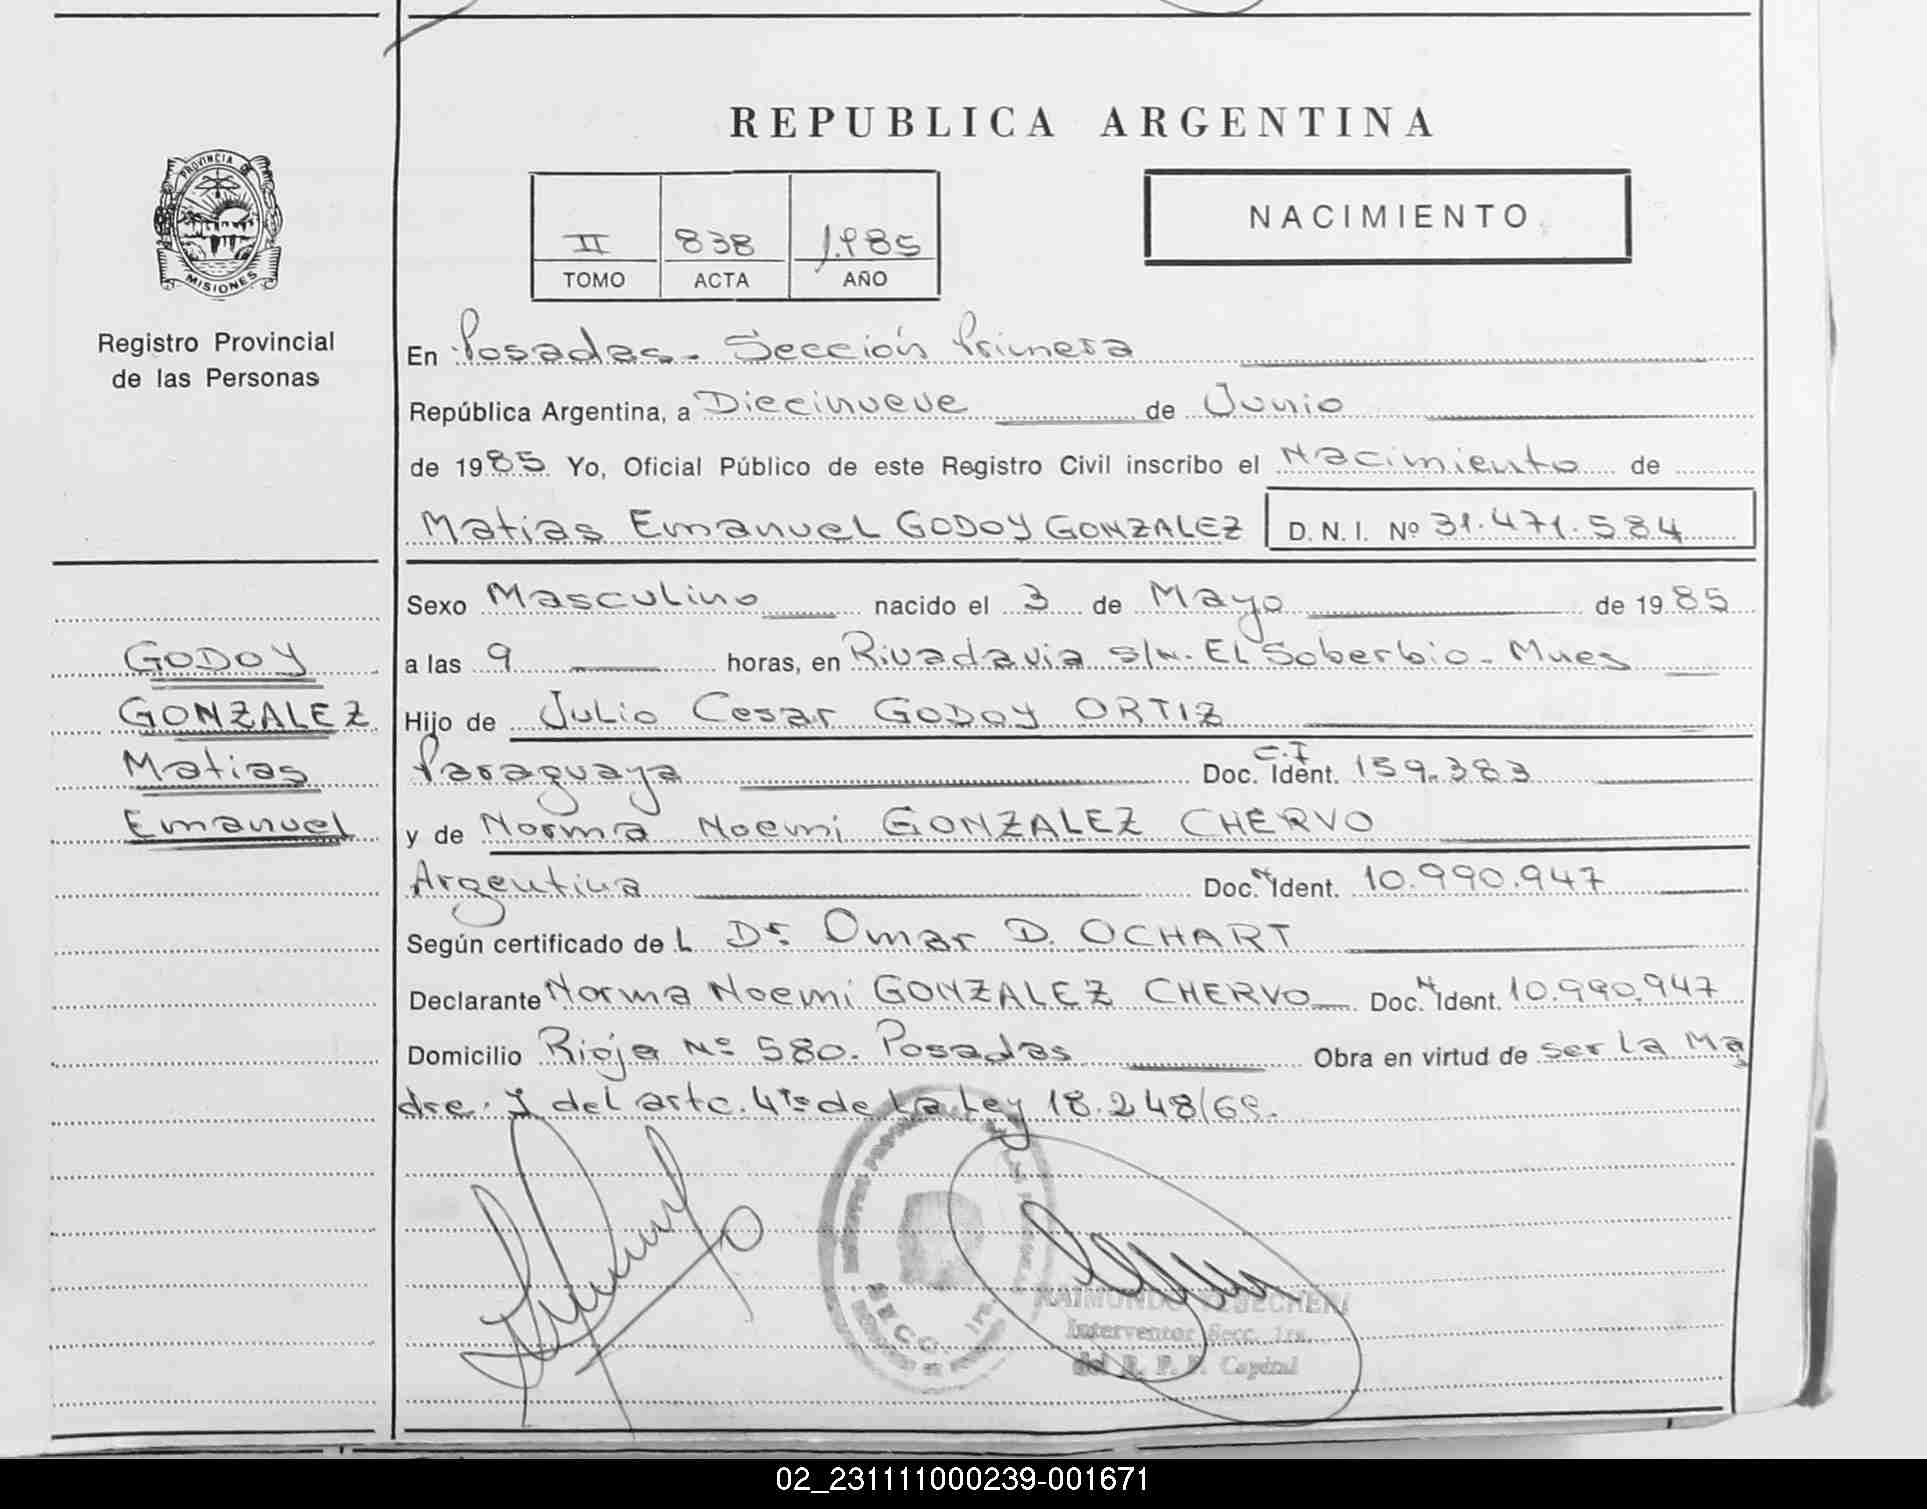 REPUBLICA ARGENTINA
PROVINCIA DE
MISIONES
Registro Provincial
de las Personas
II 838 1.985
TOMO ACTA AÑO
NACIMIENTO
En Posadas - Sección Primera
República Argentina, a Diecinueve de Junio
de 1985 Yo, Oficial Público de este Registro Civil inscribo el Nacimiento de
Matias Emanuel GODOY GONZALEZ D. N. I. Nº 31.471.584
Sexo Masculino nacido el 3 de Mayo de 1985
a las 9 horas, en Rivadavia s/n. El Soberbio - Mnes
Hijo de Julio Cesar GODOY ORTIZ
Paraguaya Doc. C.I Ident. 159.383
y de Norma Noemi GONZALEZ CHERVO
Argentina Doc. N Ident. 10.990.947
Según certificado de L Dr. Omar D. OCHART
Declarante Norma Noemi GONZALEZ CHERVO Doc. N Ident. 10.990.947
Domicilio Rioja Nº 580. Posadas Obra en virtud de ser la Ma
dre. Y del artc. 4to de la Ley 18.248/69.
GODOY
GONZALEZ
Matias
Emanuel
SECC. 1ra.
RAIMUNDO
Interventor Secc. 1ra.
del R. P. P. Capital
02_231111000239-001671